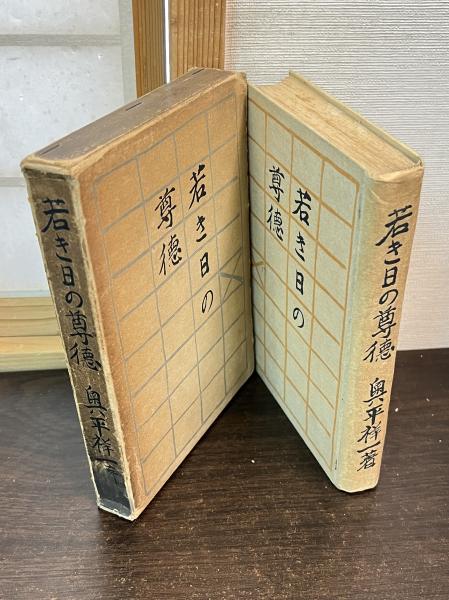 若き日の尊徳 奥平祥一
若き日の
尊徳
若き日の
尊徳
若き日の尊徳 奥平祥一著